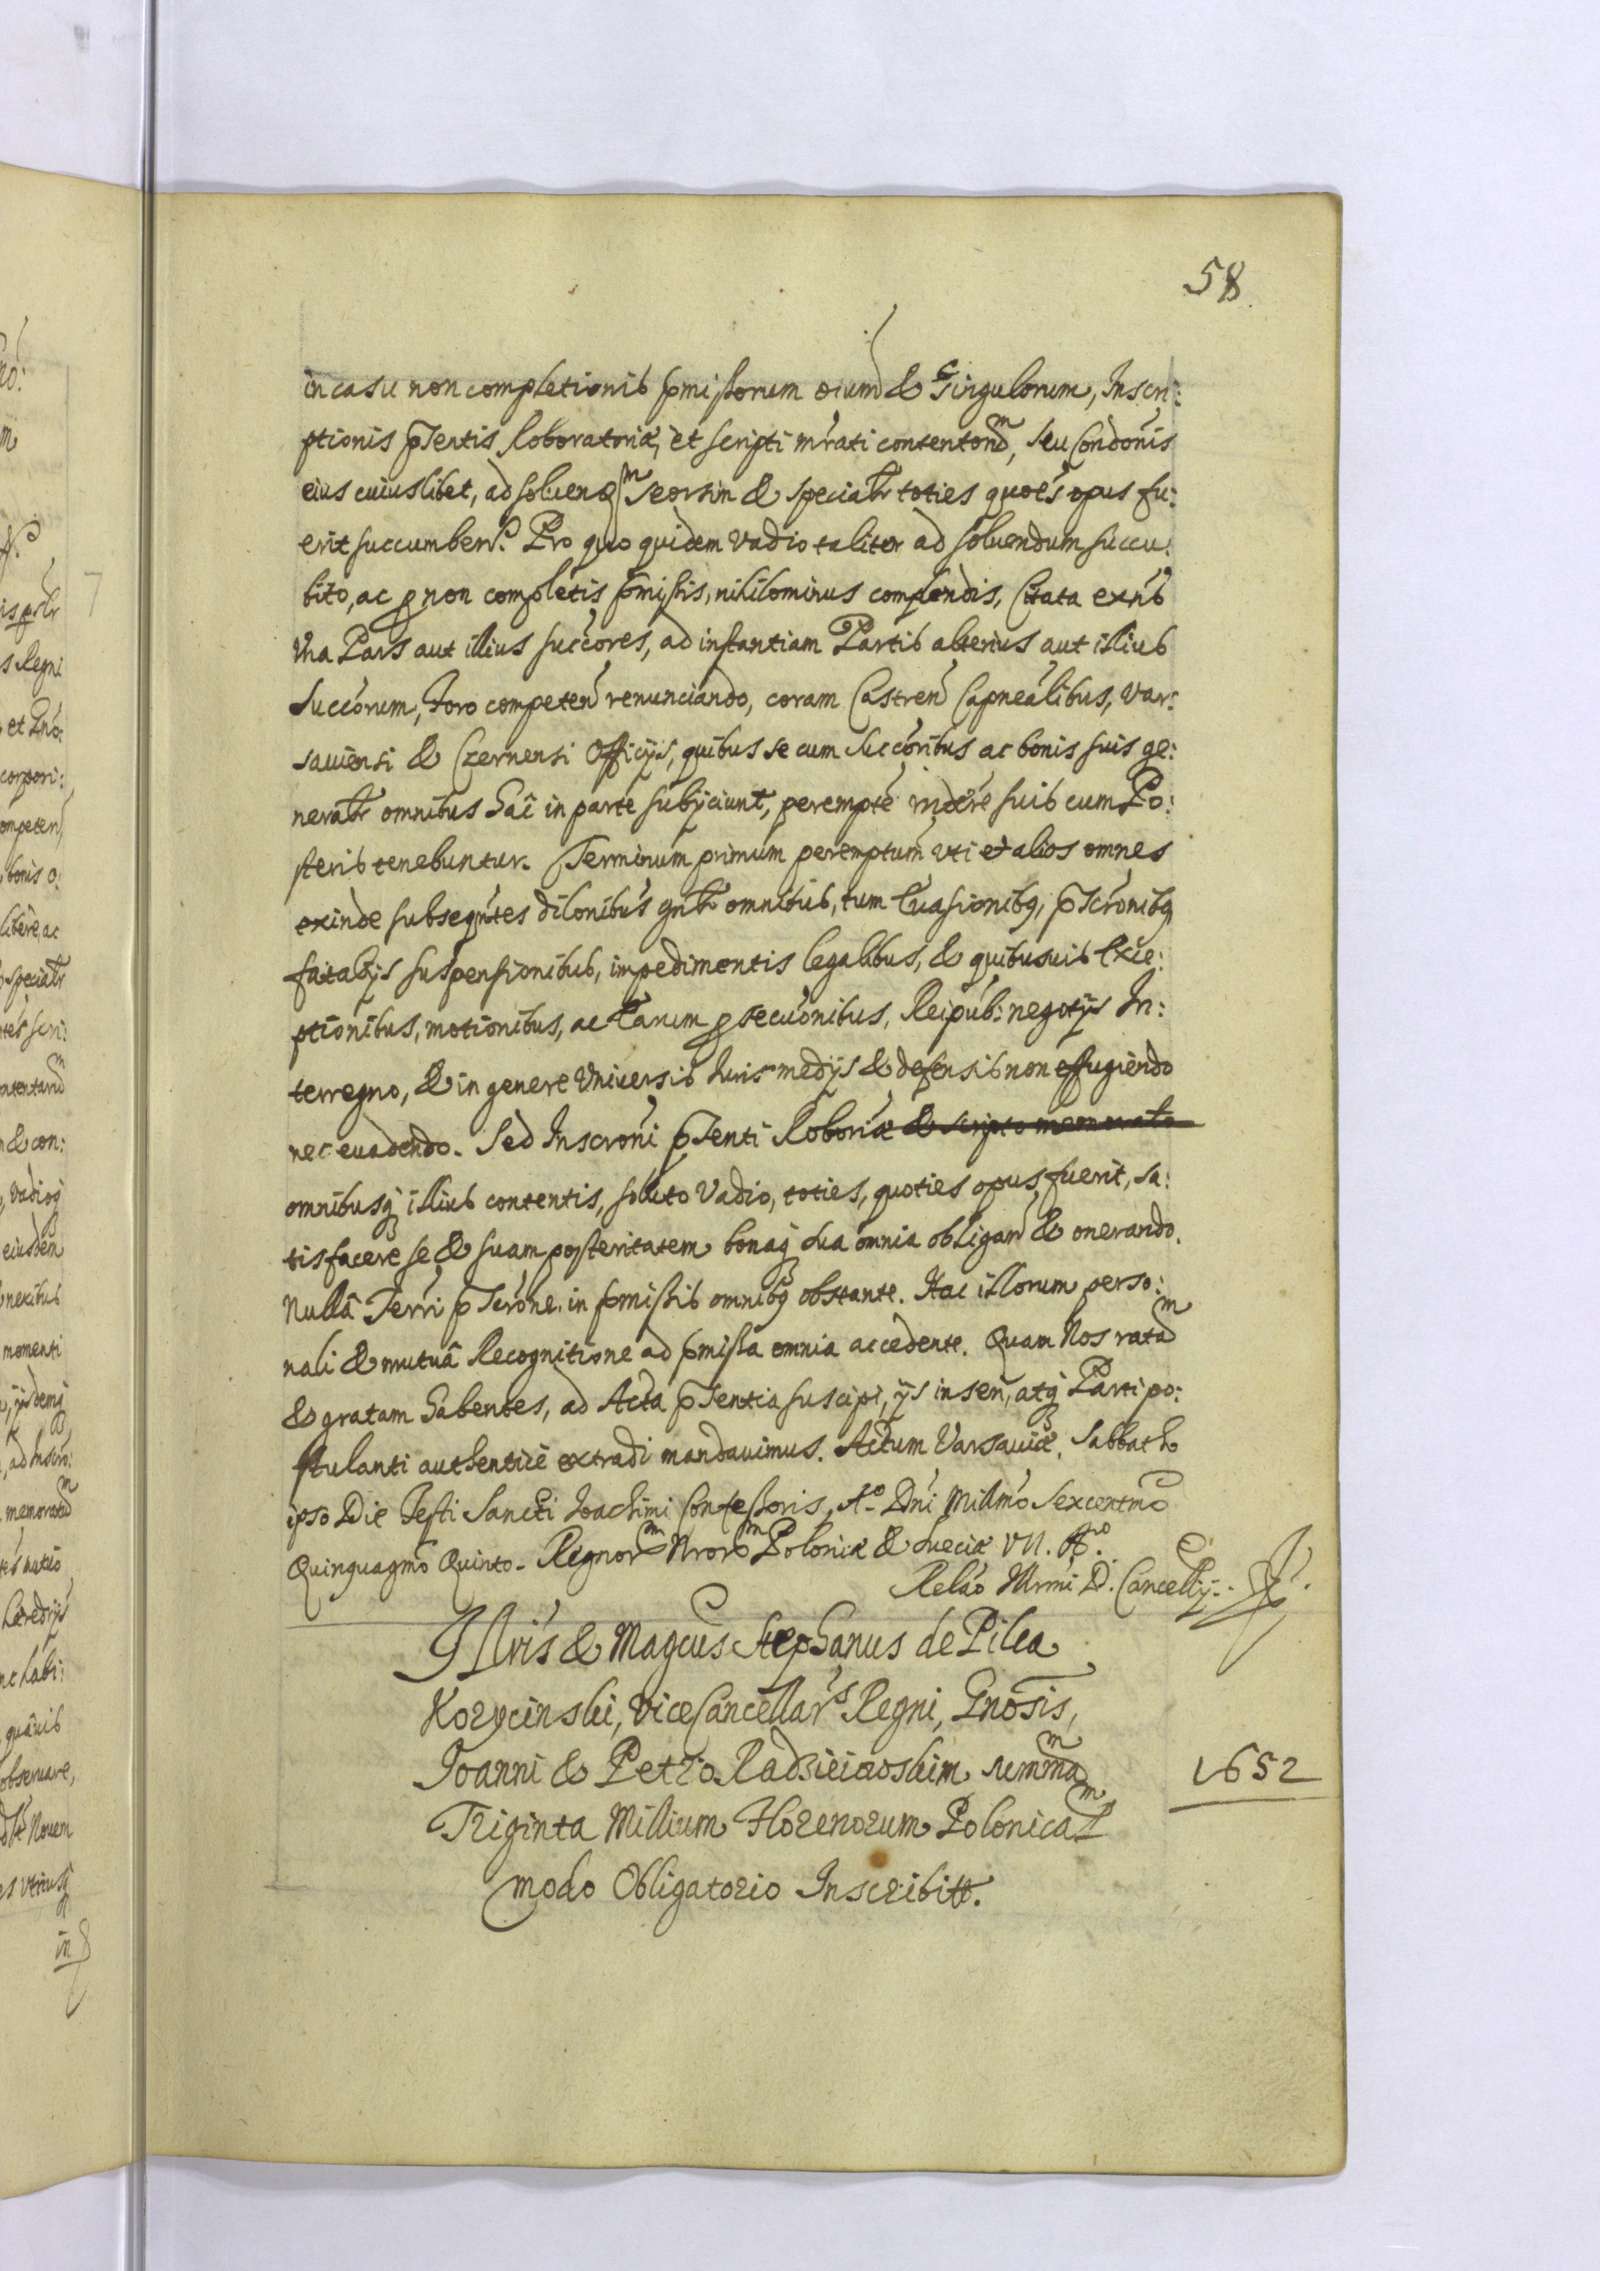 58
in casu non completionis pmissorum oium & Singulorum, Inscri:
ptionis pŝentis Roboratoriæ, et scripti mrati contentorum, seu Condonis
eius cuiuslibet, ad soluendum seorsim & specialr toties quoés opus fu:
erit succumbens. Pro quo quidem vadio taliter ad soluendum succu:
bito, ac p non completis pmissis, nihilominus complendis, Citata extnb
Vna Pars aut illius succores, ad instantiam Partis alterius aut illius
Succorum, Foro competen renunciando, coram Castren Capnealibus, Var:
sauiensi & Czernensi Officijs, quibus se cum Succoribus ac bonis suis ge:
neralr omnibus hac in parte subijciunt, perempte rndere suis cum Po:
steris tenebuntur. Terminum primum peremptum vti et alios omnes
exinde subseqntes dilonibus gnlr omnibus, tum Euasionibq, pscronibq
fatalijs suspensionibus, impedimentis legalibus, & quibusuis Exce:
ptionibus, motionibus, ac Earum psecuonibus, Reipub: negotijs In:
terregno, & in genere Vniuersis Iuris medijs & defensis non effugiendo
nec euadendo. Sed Inscroni pŝenti Roboriæ & scripto memorato
omnibusq illius contentis, soluto Vadio, toties, quoties opus fuerit, sa:
tisfacere se & suam posteritatem bonaq sua omnia obligan & onerando.
Nullâ Terri pscrone in pmissis omnibq obstante. Hac illorum perso:
nali & mutuâ Recognitione ad pmissa omnia accedente. Quam Nos ratam
& gratam habentes, ad Acta pŝentia suscipi, ijs inseri, atq Parti po:
stulanti authentice extradi mandauimus. Actum Varsauiæ, Sabbatho
ipso Die Festi Sancti Ioachimi Confessoris, Aº Dni Millmo Sexcentmo
Quinquagmo Quinto. Regnorm Nrorm Poloniæ & Sueciæ VII. Aº.
Relao Illrmi D. Cancellrij.
Illris & Magcus Stephanus de Pilca
Korycinski, ViceCancellars Regni, Gnosis,
Joanni & Petro Radzieiowskim summam
Triginta Millium Florenorum Polonicalm
modo Obligatorio Inscribitt.
1652